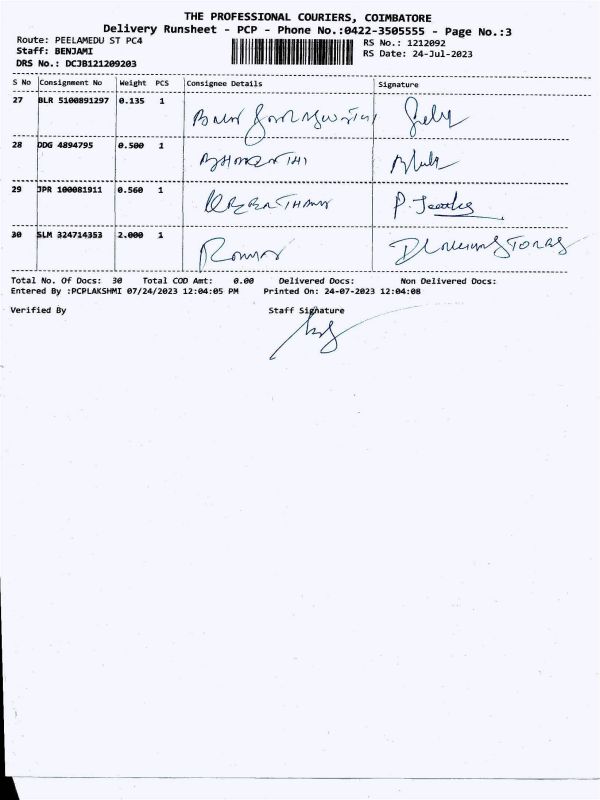 THE PROFESSIONAL COURIERS, COIMBATORE
Delivery Runsheet - PCP - Phone No.:0422-3505555 - Page No.:3
Route: PEELAMEDU ST PC4 RS No.: 1212092
Staff: BENJAMI RS Date: 24-Jul-2023
DRS No.: DCJB121209203
S No Consignment No Weight PCS Consignee Details Signature
27 BLR 5100891297 0.135 1
28 DDG 4894795 0.500 1
29 JPR 100081911 0.560 1
30 SLM 324714353 2.000 1
Total No. Of Docs: 30 Total COD Amt: 0.00 Delivered Docs: Non Delivered Docs:
Entered By :PCPLAKSHMI 07/24/2023 12:04:05 PM Printed On: 24-07-2023 12:04:08
Verified By Staff Signature